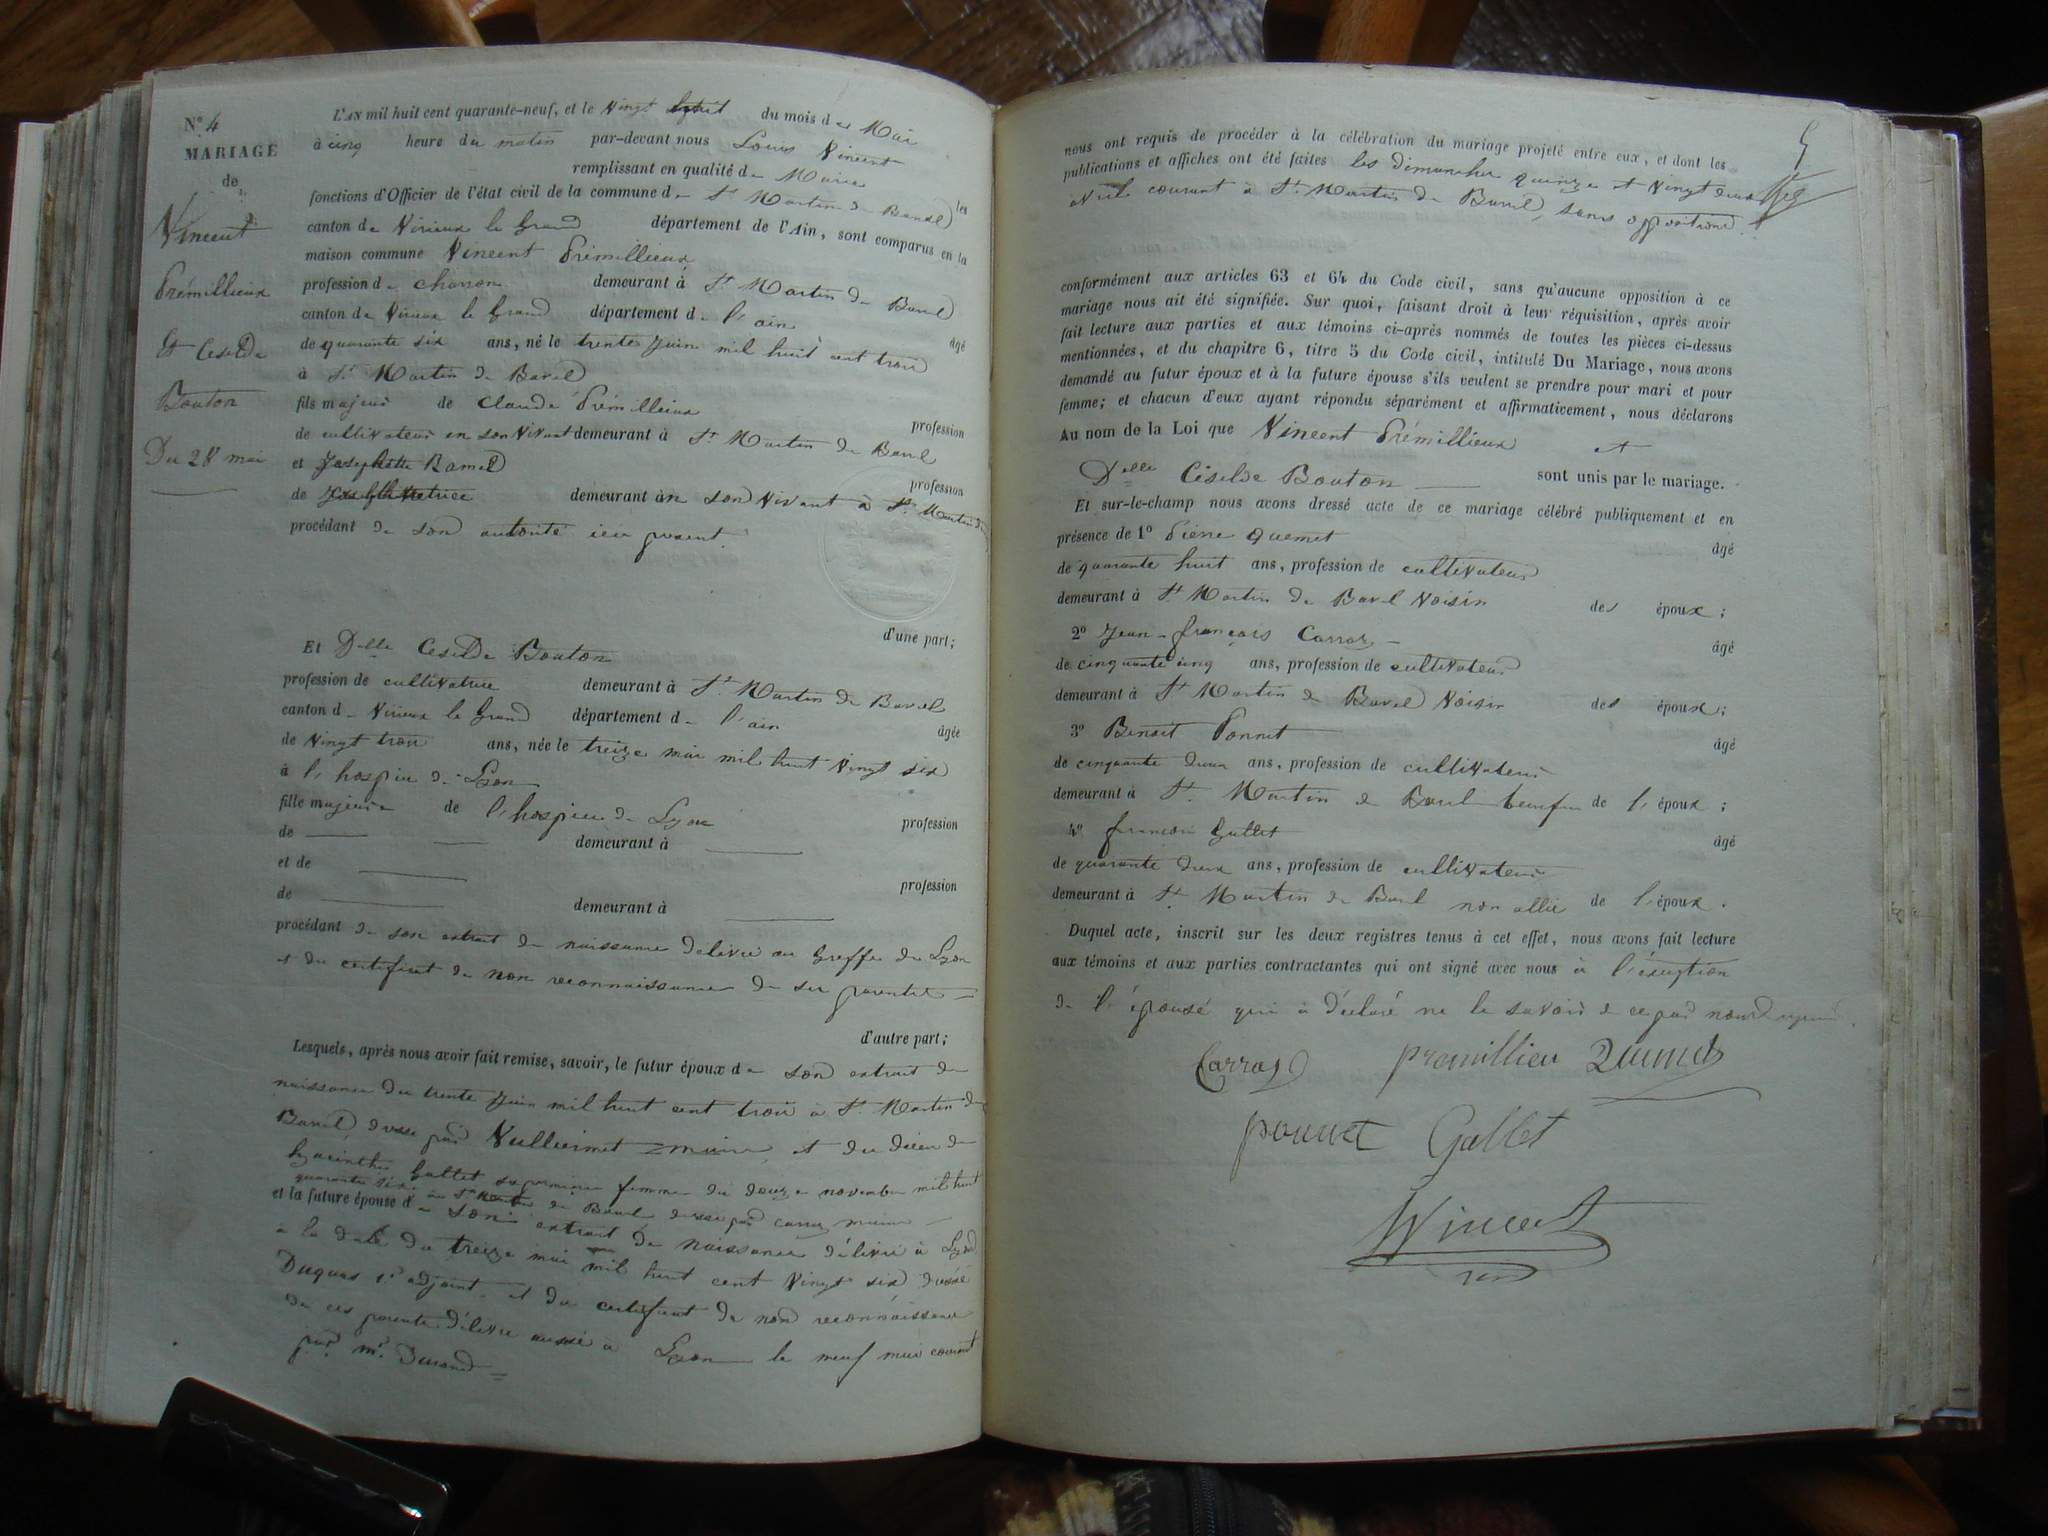 N° 4
MARIAGE
de
Vincent
Prémillieux
Et Céselde
Bouton
Du 28 mai
L'AN mil huit cent quarante-neuf, et le Vingt huit du mois de Mai
à cinq heure du matin par-devant nous Louis Vincent
remplissant en qualité de Maire les
fonctions d'Officier de l'état civil de la commune de St Martin de Bavel
canton de Virieux le Grand département de l'Ain, sont comparus en la
maison commune Vincent Prémillieux
profession de charron demeurant à St Martin de Bavel
canton de Virieux le Grand département de l'ain âgé
de quarante six ans, né le trente Juin mil huit cent trois
à St Martin de Bavel
fils majeur de Claude Prémillieux profession
de cultivateur en son Vivant demeurant à St Martin de Bavel
et Josephette Ramel profession
de demeurant en son Vivant à St Martin de
procédant de son autorité ici présent.
d'une part;
Et Delle Céselde Bouton
profession de cultivatrice demeurant à St Martin de Bavel
canton de Virieux le Grand département de l'ain âgée
de Vingt trois ans, née le treize mai mil huit Vingt six
à l'hospice de Lyon
fille majeure de l'hospice de Lyon profession
de demeurant à
et de profession
de demeurant à
procédant de son extrait de naissance délivré au Greffe de Lyon
et du certificat de non reconnaissance de ses parents
d'autre part;
Lesquels, après nous avoir fait remise, savoir, le futur époux de son extrait de
naissance du trente Juin mil huit cent trois à St Martin de
Bavel dressé par Vulliermet maire, et du décès de
hyacinthe Gallet sa première femme du douze novembre mil huit
quarante six au St Martin de Bavel dressé par Carraz maire
et la future épouse de son extrait de naissance délivré à Lyon
à la date du treize mai mil huit cent Vingt six dressé
Duquas 1er adjoint et du certificat de non reconnaissance
de ces parents délivré aussi à Lyon le neuf mai courant
par mr Durand
5
nous ont requis de procéder à la célébration du mariage projeté entre eux, et dont les
publications et affiches ont été faites les dimanches quinze et Vingt deux
avril courant à St Martin de Bavel, sans oppositions.
conformément aux articles 63 et 64 du Code civil, sans qu'aucune opposition à ce
mariage nous ait été signifiée. Sur quoi, faisant droit à leur réquisition, après avoir
fait lecture aux parties et aux témoins ci-après nommés de toutes les pièces ci-dessus
mentionnées, et du chapitre 6, titre 5 du Code civil, intitulé Du Mariage, nous avons
demandé au futur époux et à la future épouse s'ils veulent se prendre pour mari et pour
femme; et chacun d'eux ayant répondu séparément et affirmativement, nous déclarons
Au nom de la Loi que Vincent Prémillieux et
Delle Céselde Bouton sont unis par le mariage.
Et sur-le-champ nous avons dressé acte de ce mariage célébré publiquement et en
présence de 1° Pierre Quemet âgé
de quarante huit ans, profession de cultivateur
demeurant à St Martin de Bavel Voisin des époux;
2° Jean-françois Carraz âgé
de cinquante cinq ans, profession de cultivateur
demeurant à St Martin de Bavel Voisin des époux;
3° Benoit Ponnet âgé
de cinquante deux ans, profession de cultivateur
demeurant à St Martin de Bavel de l'époux;
4° françois Gallet âgé
de quarante deux ans, profession de cultivateur
demeurant à St Martin de Bavel non allié de l'époux.
Duquel acte, inscrit sur les deux registres tenus à cet effet, nous avons fait lecture
aux témoins et aux parties contractantes qui ont signé avec nous à l'exception
de l'épouse qui à déclaré ne le savoir de ce par nous
Carraz premillieu Quemet
ponnet Gallet
Vincent